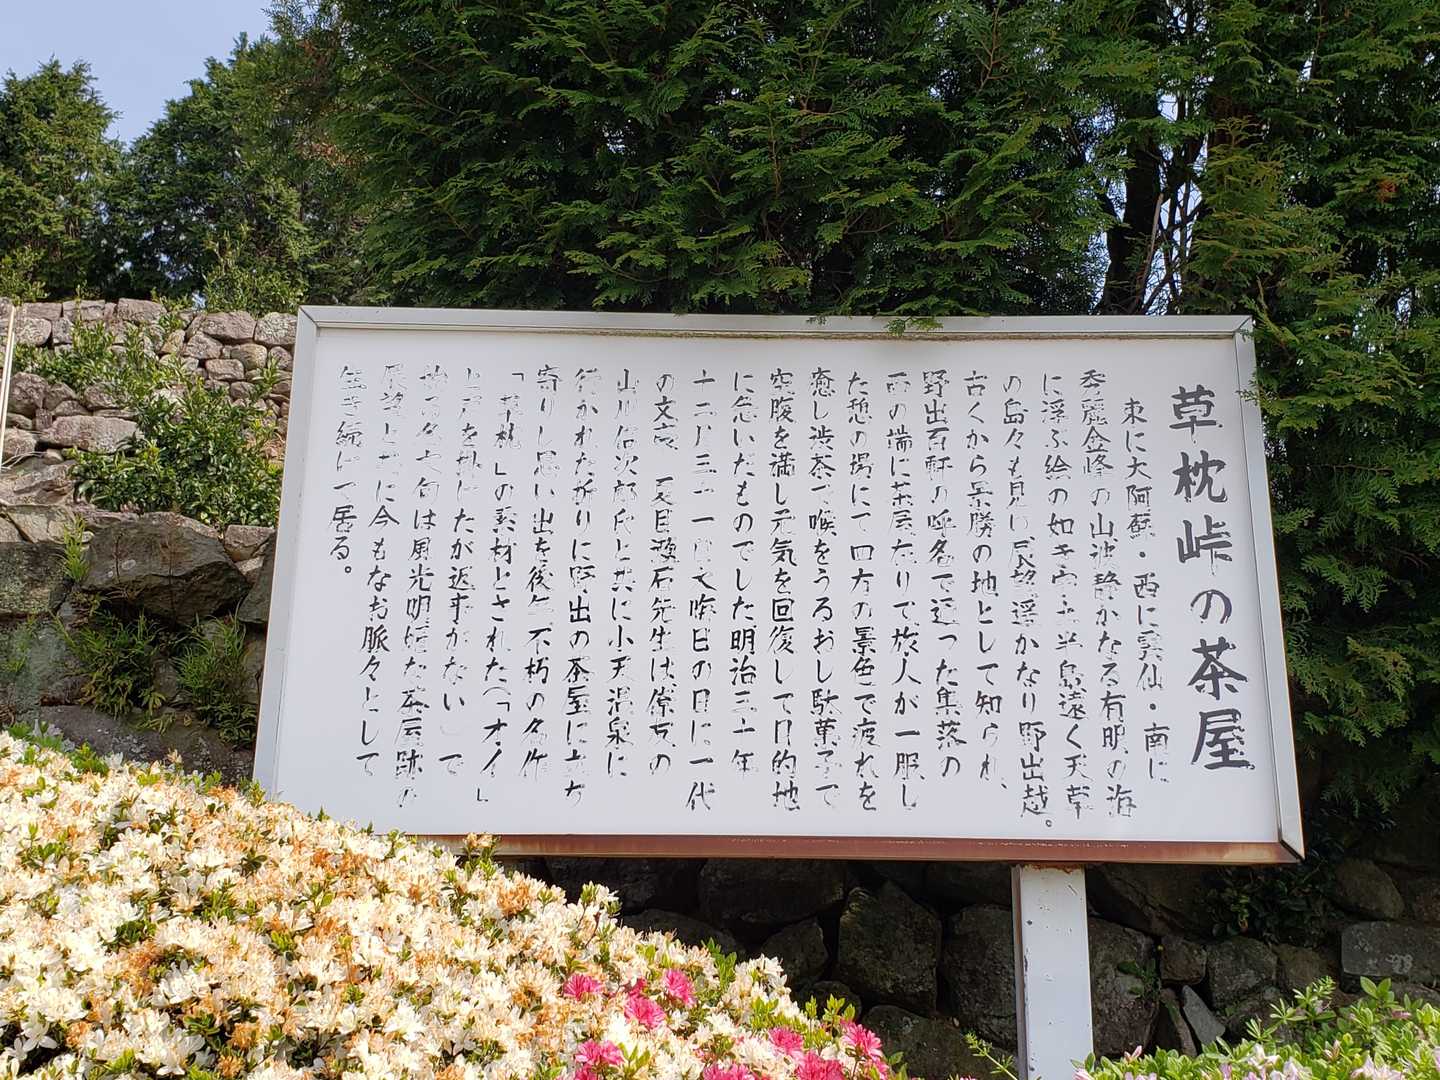 草枕峠の茶屋
東に大阿蘇・西に雲仙・南に
秀麗金峰の山波静かなる有明の海
に浮ぶ絵の如き宇土半島遠く天草
の島々も見え展望遥かなり野出越。
古くから景勝の地として知られ、
野出百軒の呼名で辺った集落の
西の端に茶屋在りて旅人が一服し
た憩の場にて四方の景色で疲れを
癒し渋茶で喉をうるおし駄菓子で
空腹を満し元気を回復して目的地
に急いだものでした明治三十年
十二月三十一日大晦日の日に一代
の文豪 夏目漱石先生は僚友の
山川信次郎氏と共に小天温泉に
行かれた折りに野出の茶屋に立ち
寄りし思い出を後年不朽の名作
「草枕」の素材とされた(「オイ」
と声を掛けたが返事がない」で
始まる名文句は風光明媚な茶屋跡の
展望と共に今もなお脈々として
生き続けて居る。